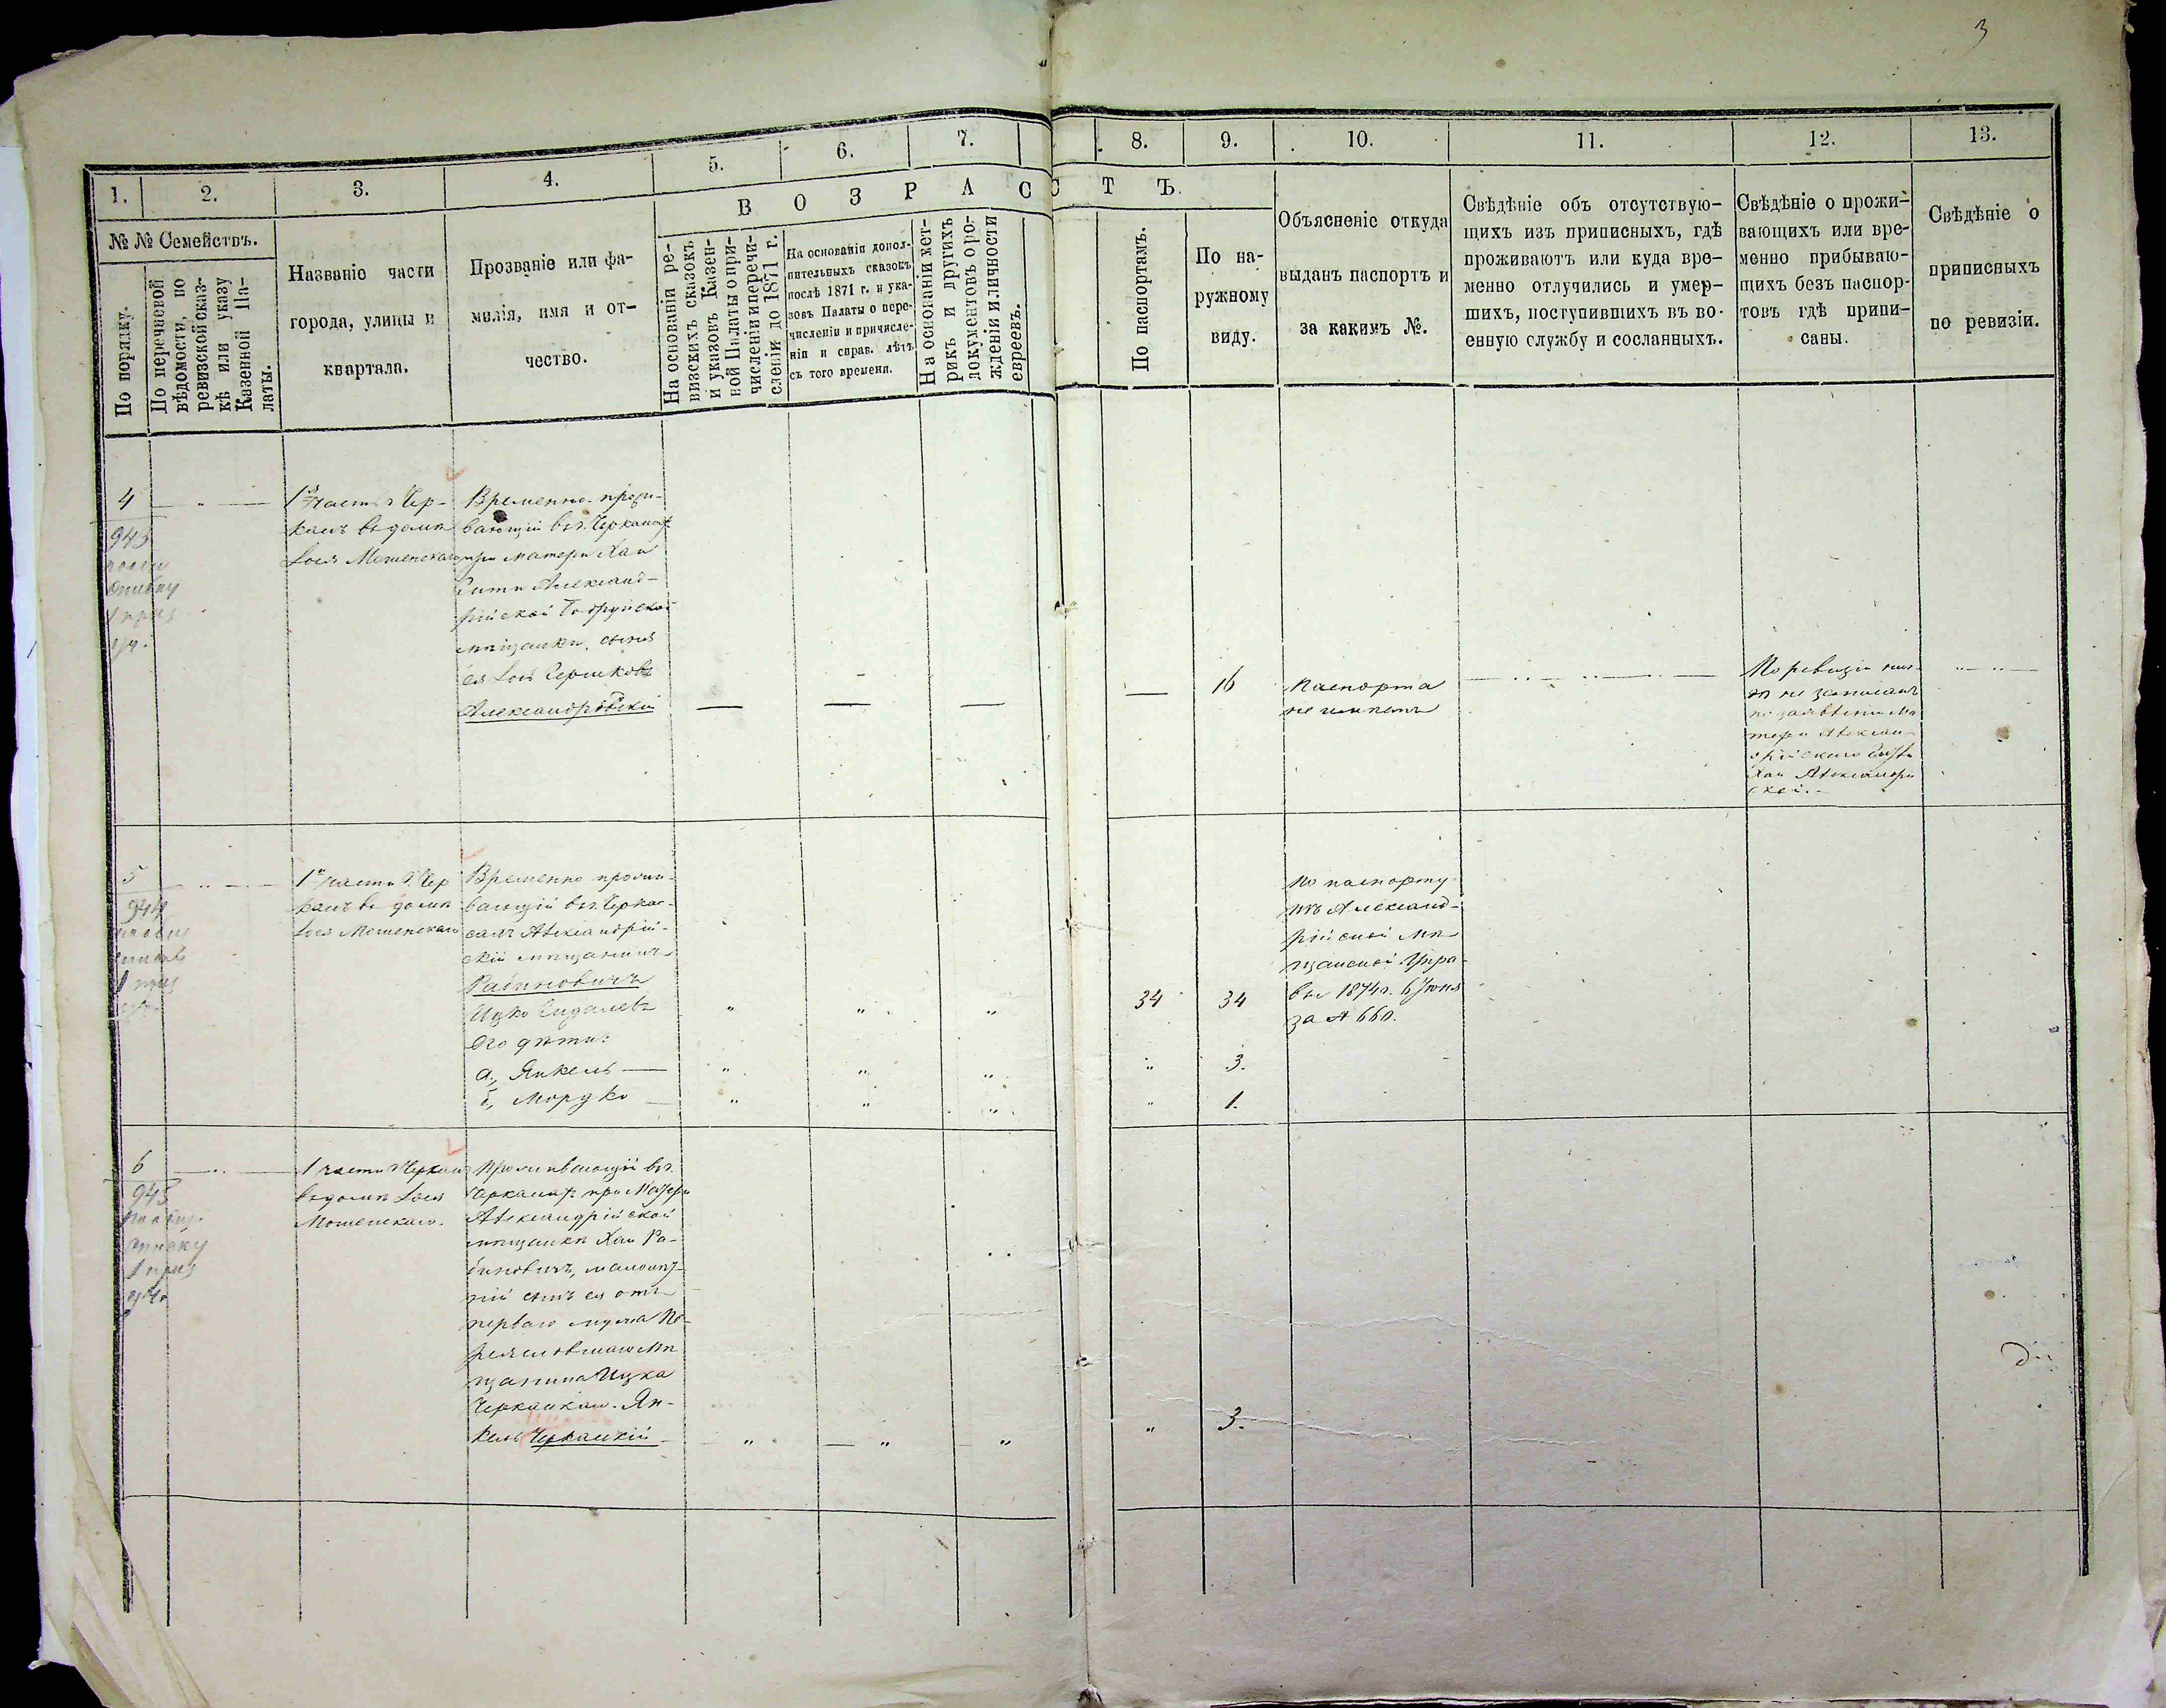 3
1.
2.
3.
4.
5.
6.
7.
8.
9.
10.
11.
12.
13.
№ № Семействъ.
По порядку.
По перечневой
вѣдомости, по
ревизской сказ-
кѣ или указу
Казенной Па-
латы.
Названіе части
города, улицы и
квартала.
Прозваніе или фа-
милія, имя и от-
чество.
В О З Р А С Т Ъ.
На основаніи ре-
визскихъ сказокъ
и указовъ Казен-
ной Палаты о при-
численіи и перечи-
сленіи до 1871 г.
На основаніи допол-
нительныхъ сказокъ
послѣ 1871 г. и ука-
зовъ Палаты о пере-
численіи и причисле-
ніи и справ. лѣтъ
съ того времени.
На основаніи мет-
рикъ и другихъ
документовъ о ро-
жденіи и личности
евреевъ.
По паспортамъ.
По на-
ружному
виду.
Объясненіе откуда
выданъ паспортъ и
за какимъ №.
Свѣдѣніе объ отсутствую-
щихъ изъ приписныхъ, гдѣ
проживаютъ или куда вре-
менно отлучились и умер-
шихъ, поступившихъ въ во-
енную службу и сосланныхъ.
Свѣдѣніе о прожи-
вающихъ или вре-
менно прибываю-
щихъ безъ паспор-
товъ гдѣ припи-
саны.
Свѣдѣніе о
приписныхъ
по ревизіи.
4
943
1 части г. Чер-
касъ въ домѣ
Іося Мошенскаго
Временно прожи-
вающій въ г. Черкасахъ
при матери Хаи
Александ-
рійской
мѣщанки, сынъ
ея Іось Гершковъ
Александровскій
—
—
—
—
16
Паспорта
не имѣетъ
По ревизіи
не записанъ
по заявленію ма
тери Алексан-
дрійскаго
Хаи Александров
ской.
5
944
1й части г. Чер
касъ въ домѣ
Іося Мошенскаго
Временно прожи-
вающій въ г. Черкас-
сахъ Александрій-
скій мѣщанинъ
Рабиновичъ
Ицко
Его дѣти:
а., Янкель —
б., Мордко —
34
34
3.
1.
По паспорту
изъ Александ-
рійской мѣ-
щанской Упра-
вы 1874 г. 6 Іюня
за № 660.
6
945
1 части г. Черкасъ
въ домѣ Іося
Мошенскаго.
Проживающій въ г.
Черкасахъ при матери
Александрійской
мѣщанки Хаи Ра-
биновичъ, малолѣт-
ній сынъ ея отъ
перваго мужа Пе-
реяславскаго мѣ
щанина Ицка
Черкаскаго. Ян-
кель Черкаскій
3.